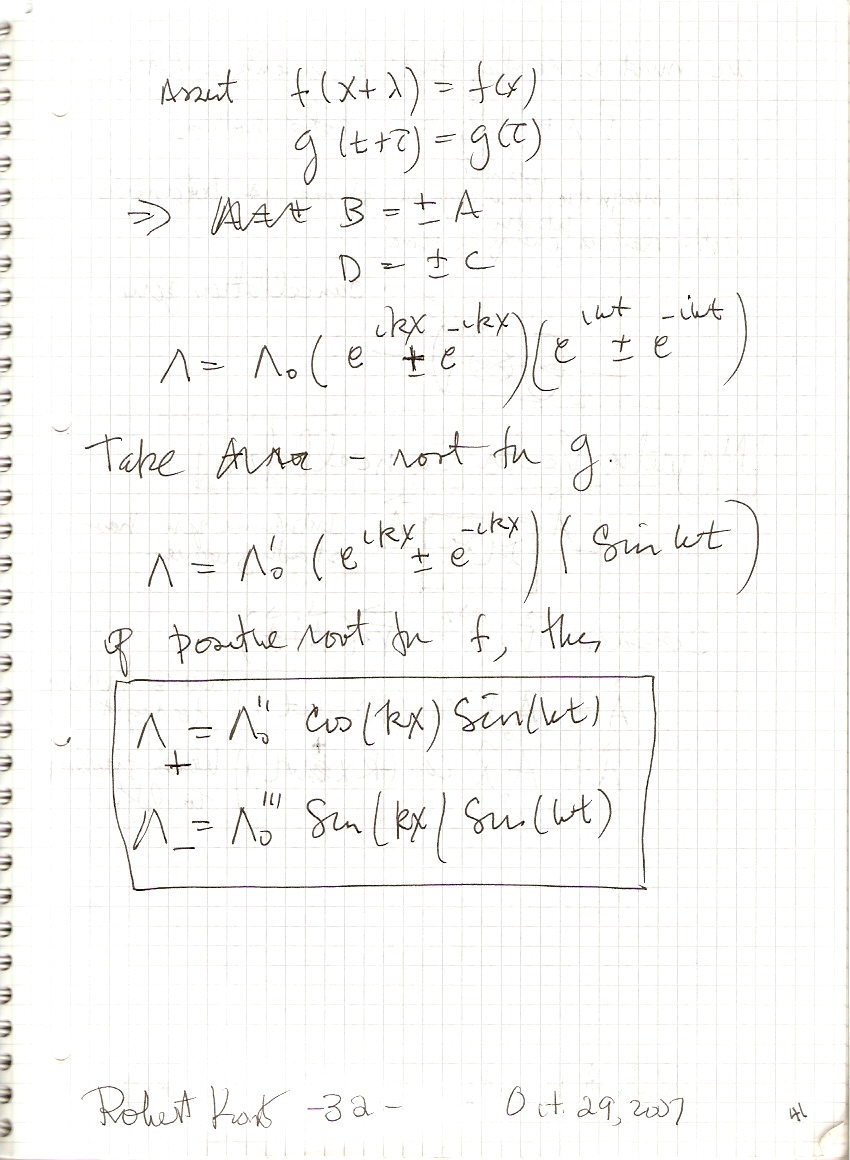 Assert f(x+λ) = f(x)
g(t+τ) = g(τ)
⇒ B = ± A
D = ± C
Λ = Λ₀ (e^{ikx} ± e^{-ikx})(e^{iωt} ± e^{-iωt})
Take - root for g.
Λ = Λ₀' (e^{ikx} ± e^{-ikx}) (Sin ωt)
If positive root for f, then
Λ₊ = Λ₀'' cos(kx) Sin(ωt)
Λ₋ = Λ₀''' Sin(kx) Sin(ωt)
Robert -32- Oct. 29, 2007 41